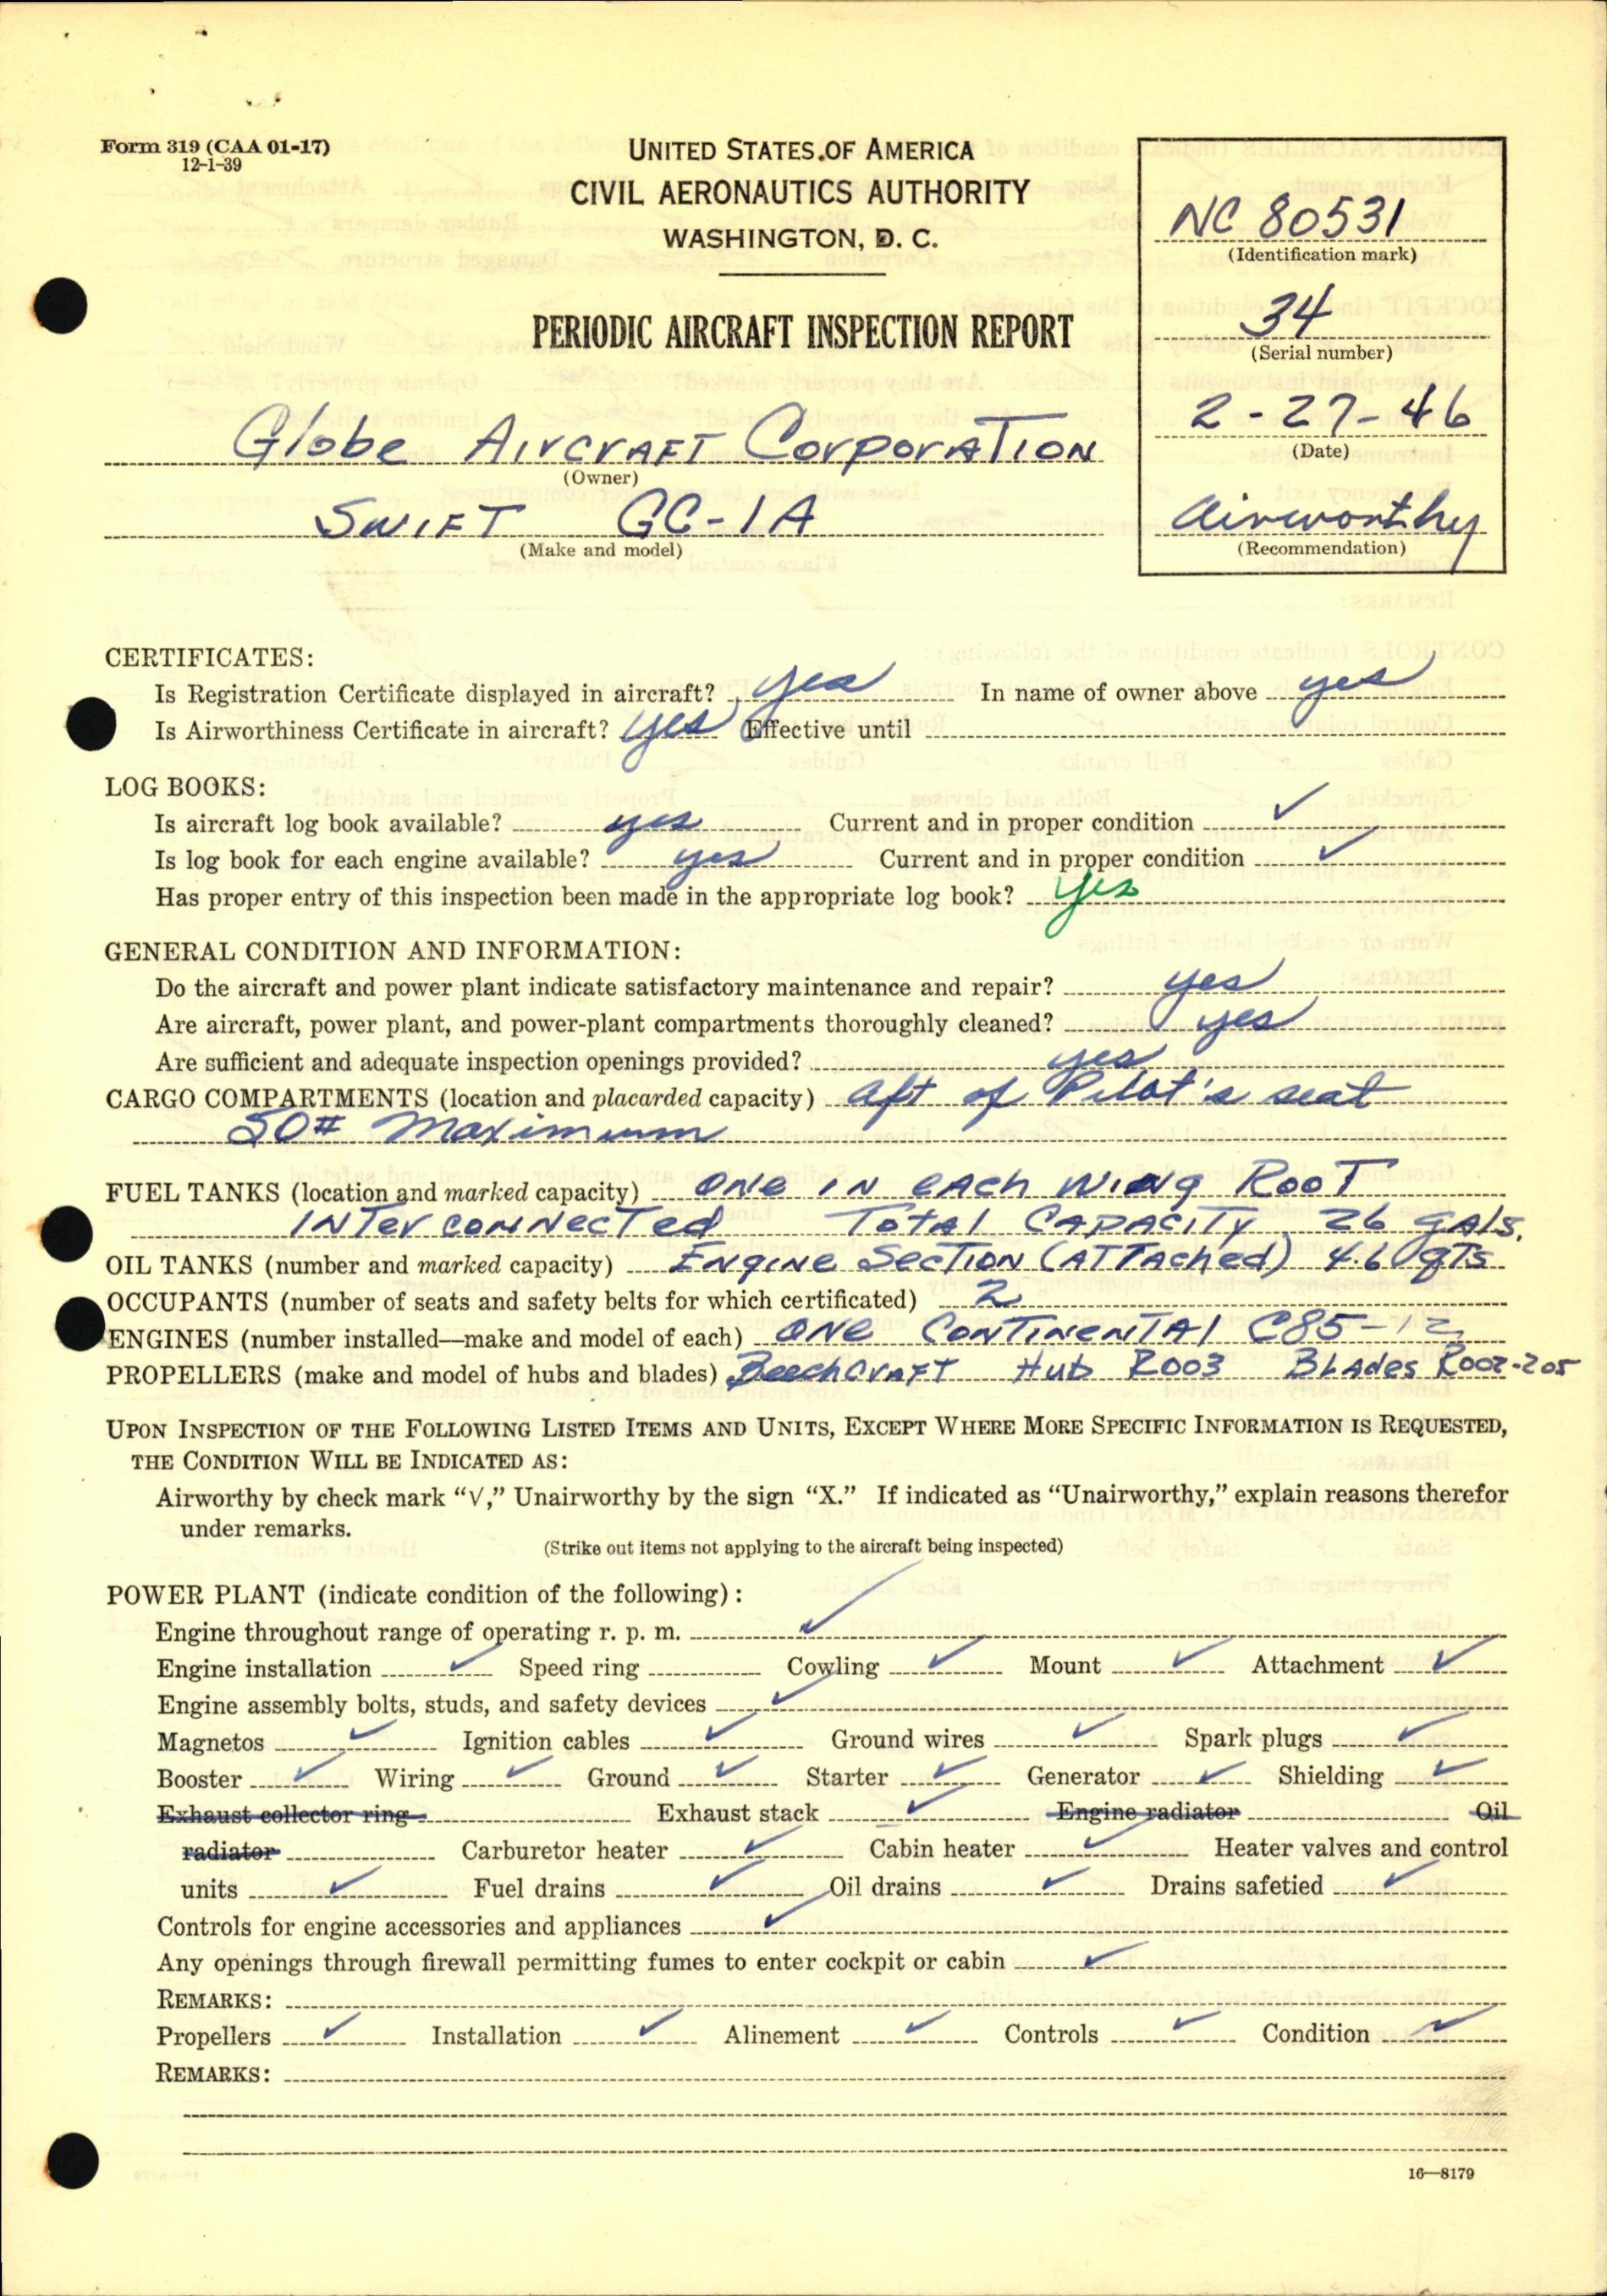 Form 319 (CAA 01-17)
12-1-39
UNITED STATES OF AMERICA
CIVIL AERONAUTICS AUTHORITY
WASHINGTON, D. C.
PERIODIC AIRCRAFT INSPECTION REPORT
NC 80531
(Identification mark)
34
(Serial number)
2-27-46
(Date)
Airworthy
(Recommendation)
Globe Aircraft Corporation
(Owner)
Swift GC-1A
(Make and model)
CERTIFICATES:
Is Registration Certificate displayed in aircraft? yes In name of owner above yes
Is Airworthiness Certificate in aircraft? yes Effective until
LOG BOOKS:
Is aircraft log book available? yes Current and in proper condition ✓
Is log book for each engine available? yes Current and in proper condition ✓
Has proper entry of this inspection been made in the appropriate log book? yes
GENERAL CONDITION AND INFORMATION:
Do the aircraft and power plant indicate satisfactory maintenance and repair? yes
Are aircraft, power plant, and power-plant compartments thoroughly cleaned? yes
Are sufficient and adequate inspection openings provided? yes
CARGO COMPARTMENTS (location and placarded capacity) aft of Pilot's seat
50# Maximum
FUEL TANKS (location and marked capacity) one in each wing Root
Interconnected Total Capacity 26 gals.
OIL TANKS (number and marked capacity) Engine Section (Attached) 4.6 qts
OCCUPANTS (number of seats and safety belts for which certificated) 2
ENGINES (number installed—make and model of each) one Continental C85-12
PROPELLERS (make and model of hubs and blades) Beechcraft Hub R003 Blades R002-205
UPON INSPECTION OF THE FOLLOWING LISTED ITEMS AND UNITS, EXCEPT WHERE MORE SPECIFIC INFORMATION IS REQUESTED,
THE CONDITION WILL BE INDICATED AS:
Airworthy by check mark "√," Unairworthy by the sign "X." If indicated as "Unairworthy," explain reasons therefor
under remarks.
(Strike out items not applying to the aircraft being inspected)
POWER PLANT (indicate condition of the following):
Engine throughout range of operating r. p. m. ✓
Engine installation ✓ Speed ring Cowling ✓ Mount ✓ Attachment ✓
Engine assembly bolts, studs, and safety devices ✓
Magnetos ✓ Ignition cables ✓ Ground wires ✓ Spark plugs ✓
Booster ✓ Wiring ✓ Ground ✓ Starter ✓ Generator ✓ Shielding ✓
Exhaust collector ring Exhaust stack ✓ Engine radiator Oil
radiator Carburetor heater ✓ Cabin heater ✓ Heater valves and control
units ✓ Fuel drains ✓ Oil drains ✓ Drains safetied ✓
Controls for engine accessories and appliances ✓
Any openings through firewall permitting fumes to enter cockpit or cabin ✓
REMARKS:
Propellers ✓ Installation ✓ Alinement ✓ Controls ✓ Condition ✓
REMARKS:
16—8179